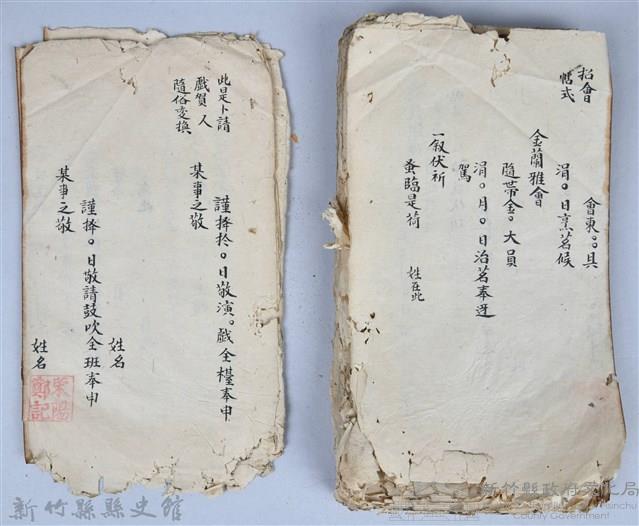 招會
帖式
會東。。具
涓。日烹茗候
金蘭雅會
隨帶金。大員
涓。月。日治茗奉迓
駕
一叙伏祈
蚤臨是荷
姓在此
此是卜請
戲質人
隨俗變換
謹擇於。日敬演。戲全檯奉申
某事之敬
姓名
謹擇。日敬請鼓吹全班奉申
某事之敬
姓名
滎陽
鄭記
新竹縣縣史館
新竹縣政府文化局
County Government